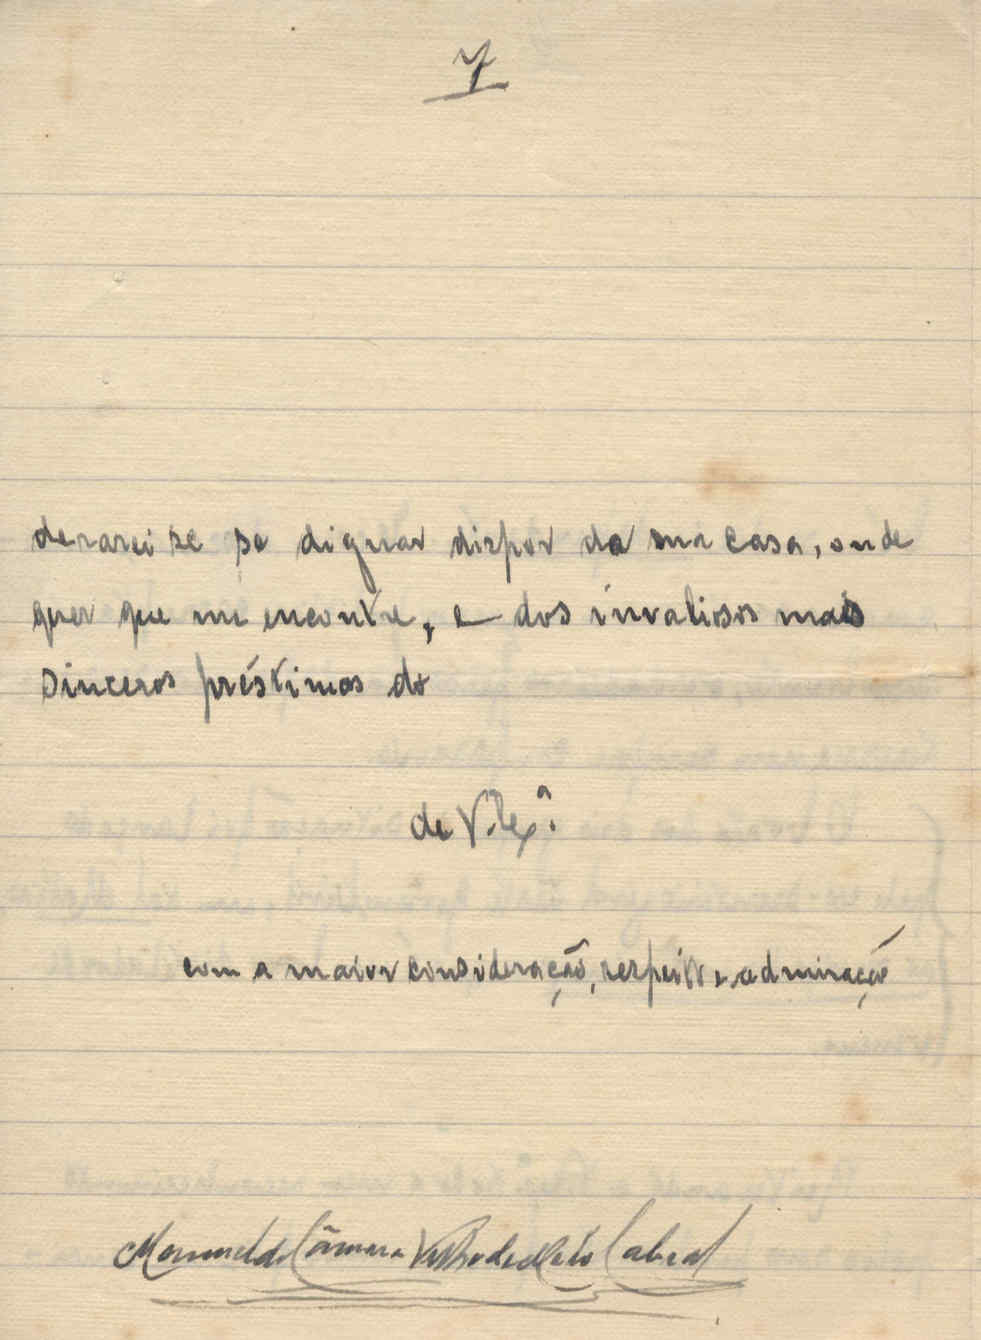 7
derarei se se dignar dispor da sua casa, onde
quer que me encontre, e dos invaliosos mas
sinceros préstimos do
de V. Ex.ª
com a maior consideração, respeito e admiração
Manuel da Câmara Velho de Melo Cabral